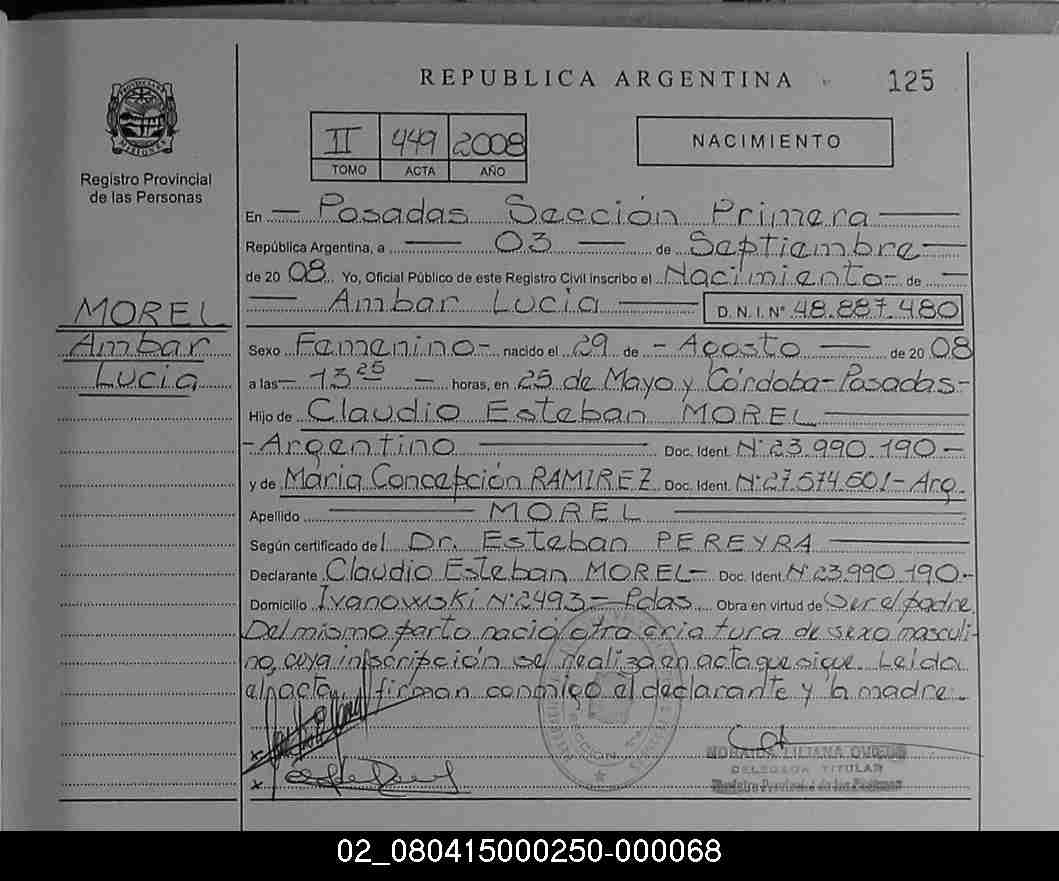 REPUBLICA ARGENTINA 125
II 449 2008
TOMO ACTA AÑO
NACIMIENTO
Registro Provincial
de las Personas
MOREL
Ambar
Lucia
En — Posadas Sección Primera —
República Argentina, a — 03 — de Septiembre —
de 20 08. Yo, Oficial Público de este Registro Civil inscribo el Nacimiento - de —
— Ambar Lucia — D. N. I. N° 48.887.480
Sexo Femenino - nacido el 29 de - Agosto — de 20 08
a las — 13 25 — horas, en 25 de Mayo y Córdoba - Posadas -
Hijo de Claudio Esteban MOREL —
- Argentino — Doc. Ident. N° 23.990.190 —
y de Maria Concepción RAMIREZ Doc. Ident. N° 27.574.501 - Arg.
Apellido — MOREL —
Según certificado del Dr. Esteban PEREYRA —
Declarante Claudio Esteban MOREL - Doc. Ident. N° 23.990.190.-
Domicilio Ivanowski N° 2493 — Pdas. Obra en virtud de ser el padre.
Del mismo parto nació otra criatura de sexo masculi-
no, cuya inscripción se realiza en acta que sigue. Leida
el acta, firman conmigo el declarante y la madre.-
x
x
LILIANA
DELEGADA TITULAR
Registro Provincial de las Personas
02_080415000250-000068